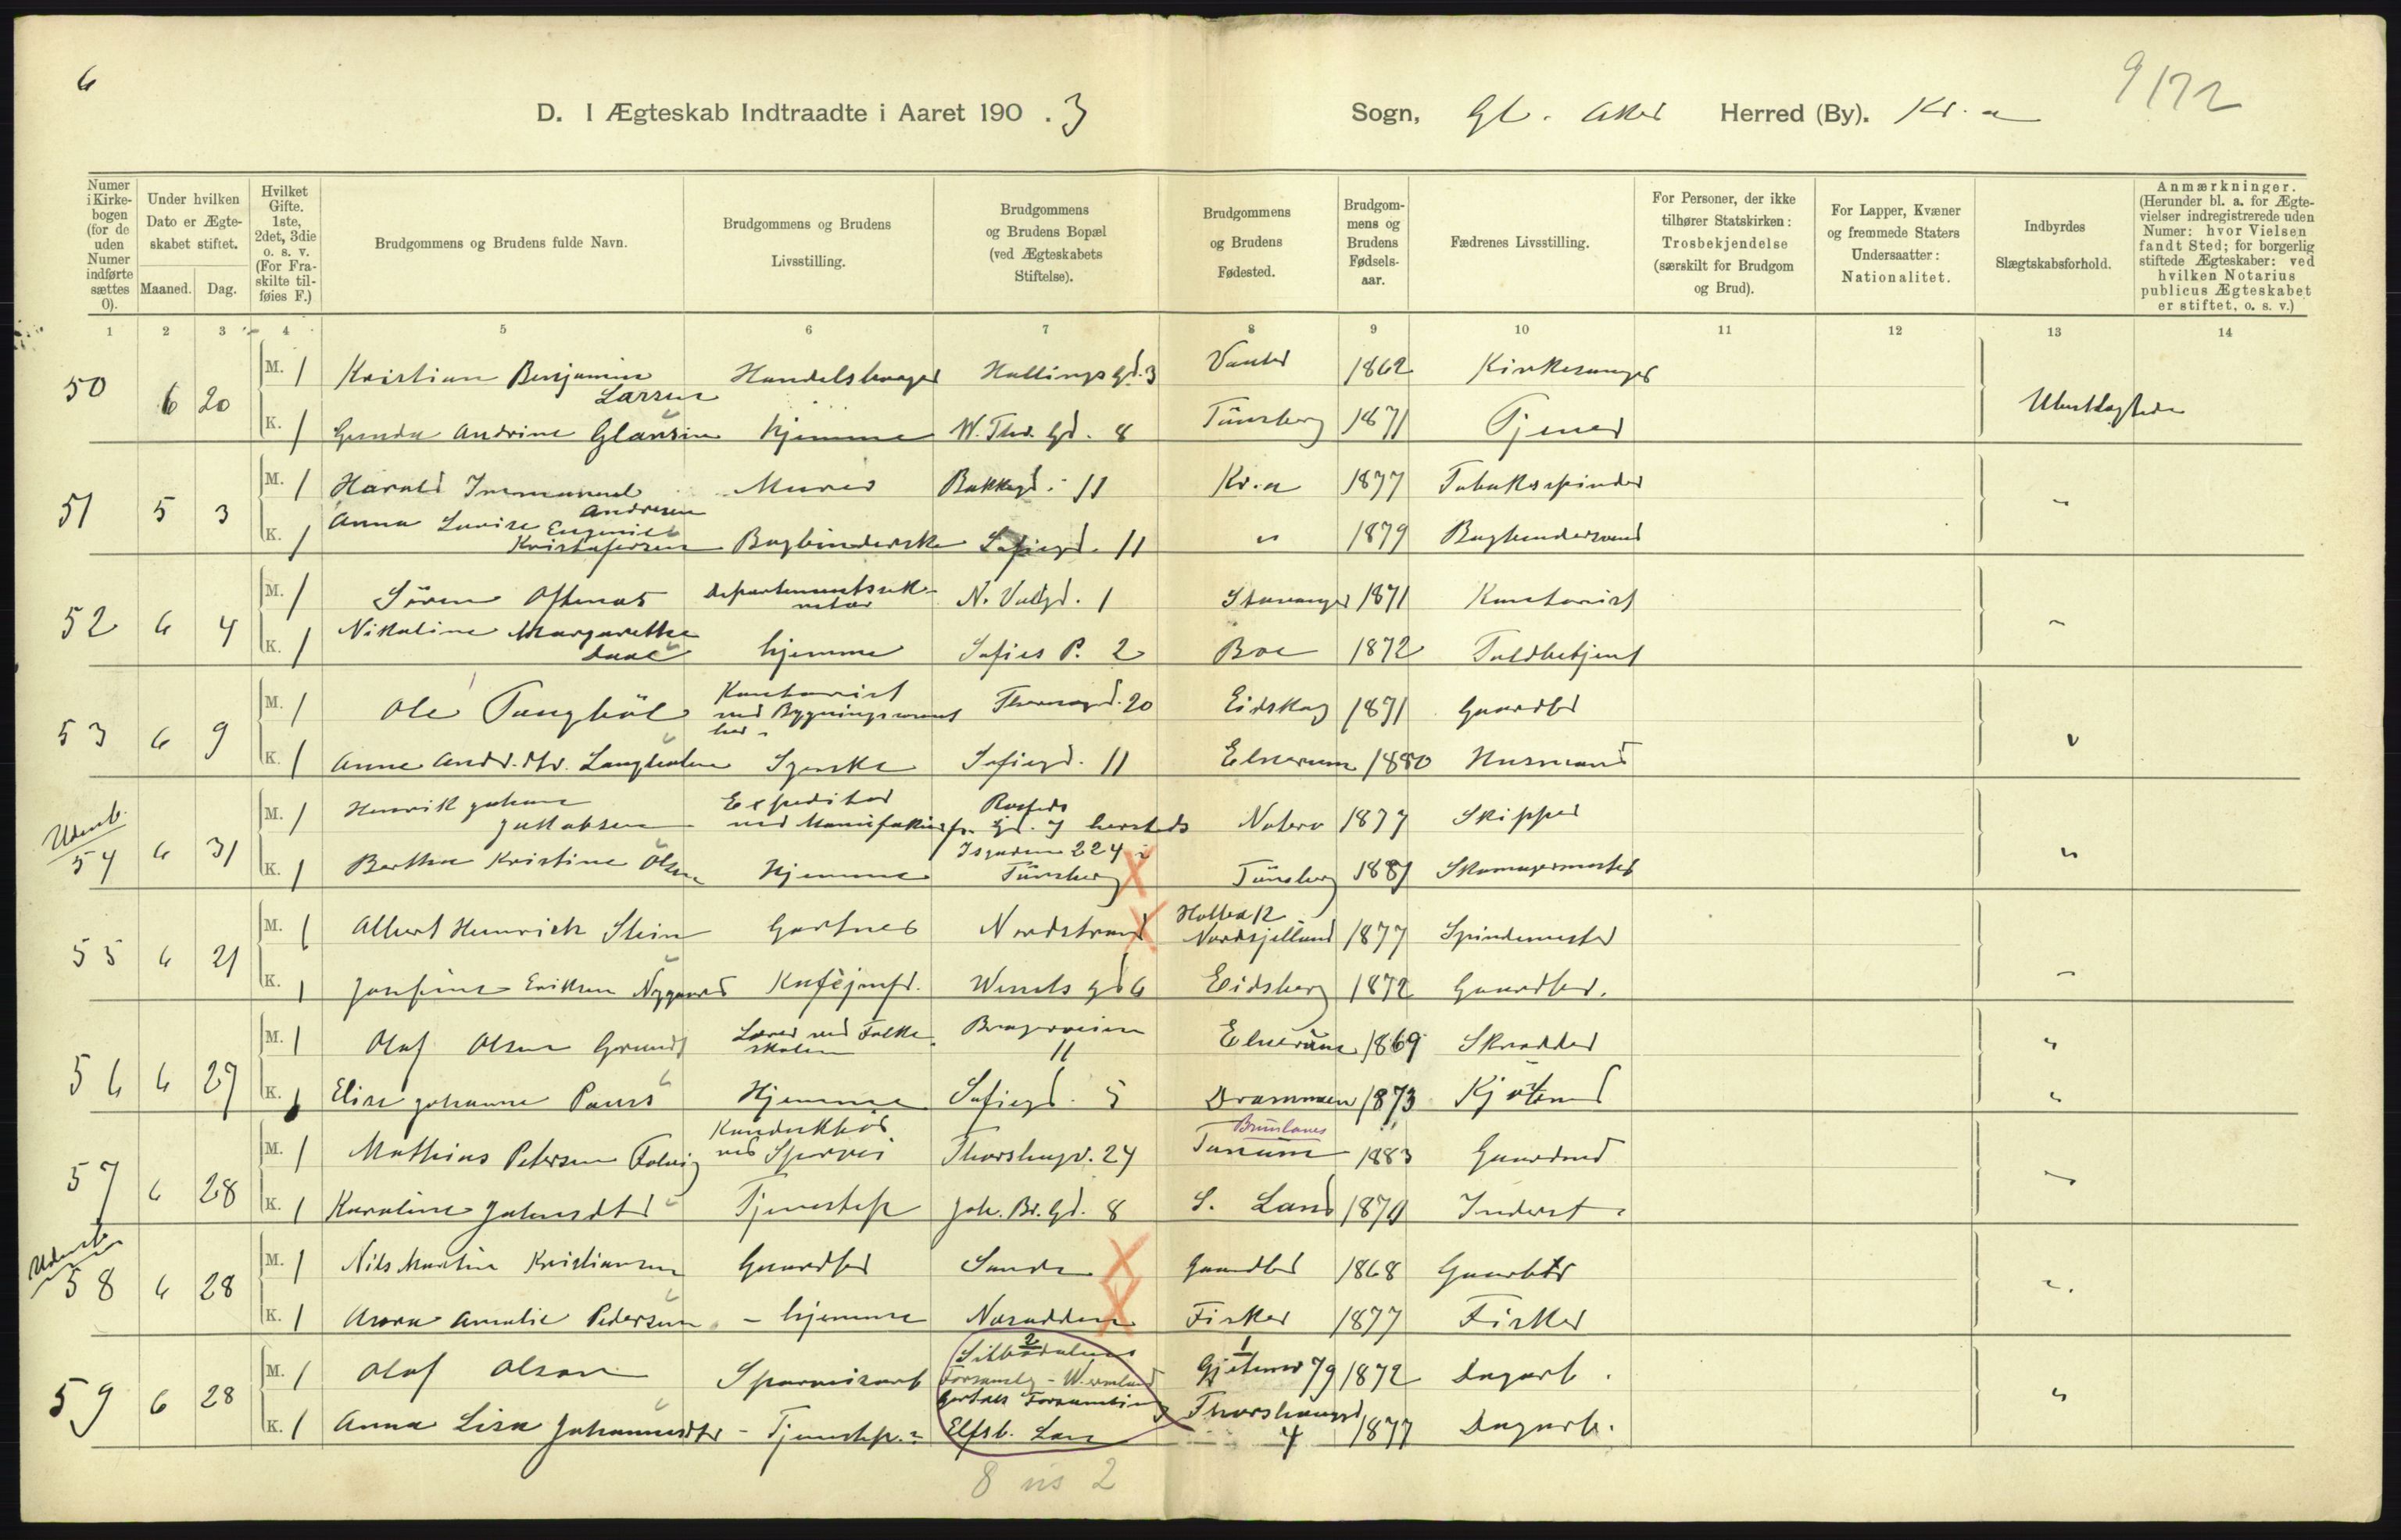 6
9/72
D. I Ægteskab Indtraadte i Aaret 190 . 3 Sogn, Gl. Aker Herred (By). Kr.a
Numer i Kirkebogen (for de uden Numer indførte sættes 0).
Under hvilken Dato er Ægteskabet stiftet.
Maaned. Dag.
Hvilket Gifte. 1ste, 2det, 3die o. s. v. (For Fraskilte tilføies F.)
Brudgommens og Brudens fulde Navn.
Brudgommens og Brudens Livsstilling.
Brudgommens og Brudens Bopæl (ved Ægteskabets Stiftelse).
Brudgommens og Brudens Fødested.
Brudgommens og Brudens Fødselsaar.
Fædrenes Livsstilling.
For Personer, der ikke tilhører Statskirken: Trosbekjendelse (særskilt for Brudgom og Brud).
For Lapper, Kvæner og fremmede Staters Undersaatter: Nationalitet.
Indbyrdes Slægtskabsforhold.
Anmærkninger. (Herunder bl. a. for Ægtevielser indregistrerede uden Numer: hvor Vielsen fandt Sted; for borgerlig stiftede Ægteskaber: ved hvilken Notarius publicus Ægteskabet er stiftet, o. s. v.)
1 2 3 4 5 6 7 8 9 10 11 12 13 14
50 6 20 M. 1 Kristian Benjamin Larsen Hallingsgd. 3 1862 Kirkesanger Ubeslægtede
K. 1 Gunda Andrine Hjemme W. Thr. Gd. 8 Tönsberg 1871 Tjener
51 5 3 M. 1 Harald Immanuel Andresen Murer Bakkegd. 11 Kr.a 1877 Tobaksspinder "
K. 1 Anna Lovise Eugenie Kristofersen Bogbinderske Sofiegd. 11 " 1879 Bogbindersvend
52 6 4 M. 1 Sören Oftenæs Departementssekretær N. Valgd. 1 Stavanger 1871 Kontorist "
K. 1 Nikoline Margarethe hjemme Sofies P. 2 Boe 1872 Toldbetjent
53 6 9 M. 1 Ole Kontorist ved 20 Eidskog 1871 Gaardbr "
K. 1 Anne Andr.dtr. Langholen Syerske Sofiegd. 11 Elverum 1880 Husmand
Udenb.
54 6 31 M. 1 Henrik Johan Jakobsen Expeditør Gd. 7 Nøtterø 1877 Skipper "
K. 1 Berthe Kristine Olsen Hjemme 224 i Tönsberg Tönsberg 1881 Skomagermester
55 6 21 M. 1 Albert Heinrich Stein Gartner Nordstrand Nordsjælland 1877 Spindemester "
K. 1 Josefine Eriksen Nygaard Kaféjmfr. Wessels gd 6 Eidsberg 1872 Gaardbr.
56 6 27 M. 1 Olaf Olsen Grund Lærer ved Folkeskolen 11 Elverum 1869 Skrædder "
K. 1 Elise Johanne Paus Hjemme Sofiegd. 5 Drammen 1873 Kjöbmd "
57 6 28 M. 1 Mathias Petersen Konduktör ved Sporvei Thorshaugv. 24 Brunlanes Tanum 1883 Gaardmd "
K. 1 Karoline Johnsdtr Tjenestep Joh. Br. Gd. 8 S. Land 1870 Inderst
Udenb.
58 6 28 M. 1 Nils Martin Kristiansen Gaardbr Sande Gaardbr 1868 Gaardbr "
K. 1 Anna Amalie Pedersen - hjemme Næsodden Fisker 1877 Fisker
59 6 28 M. 1 Olof Olsson Sporveisarb 2 Silbodalens Forsamlg - Wermland 1 79 1872 Dagarb. "
K. 1 Anna Lisa Johannesdtr - Tjenestep. Forsamling Elfsb. Län Thorshaugd 4 1877 Dagarb.
8 2